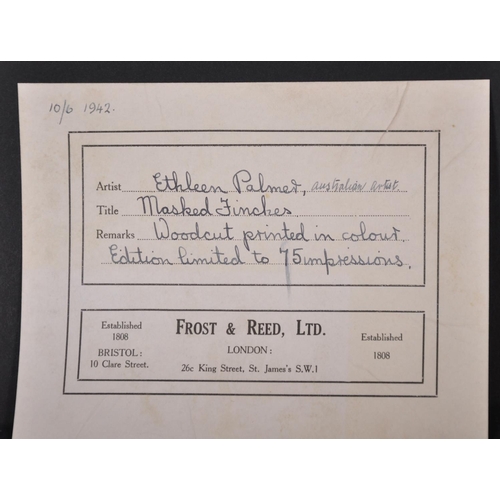 10/6 1942.
Artist Ethleen Palmer, australian artist.
Title Masked Finches
Remarks Woodcut printed in colour.
Edition limited to 75 impressions.
Established
1808
BRISTOL:
10 Clare Street.
FROST & REED, LTD.
LONDON:
26c King Street, St. James's S.W.1
Established
1808